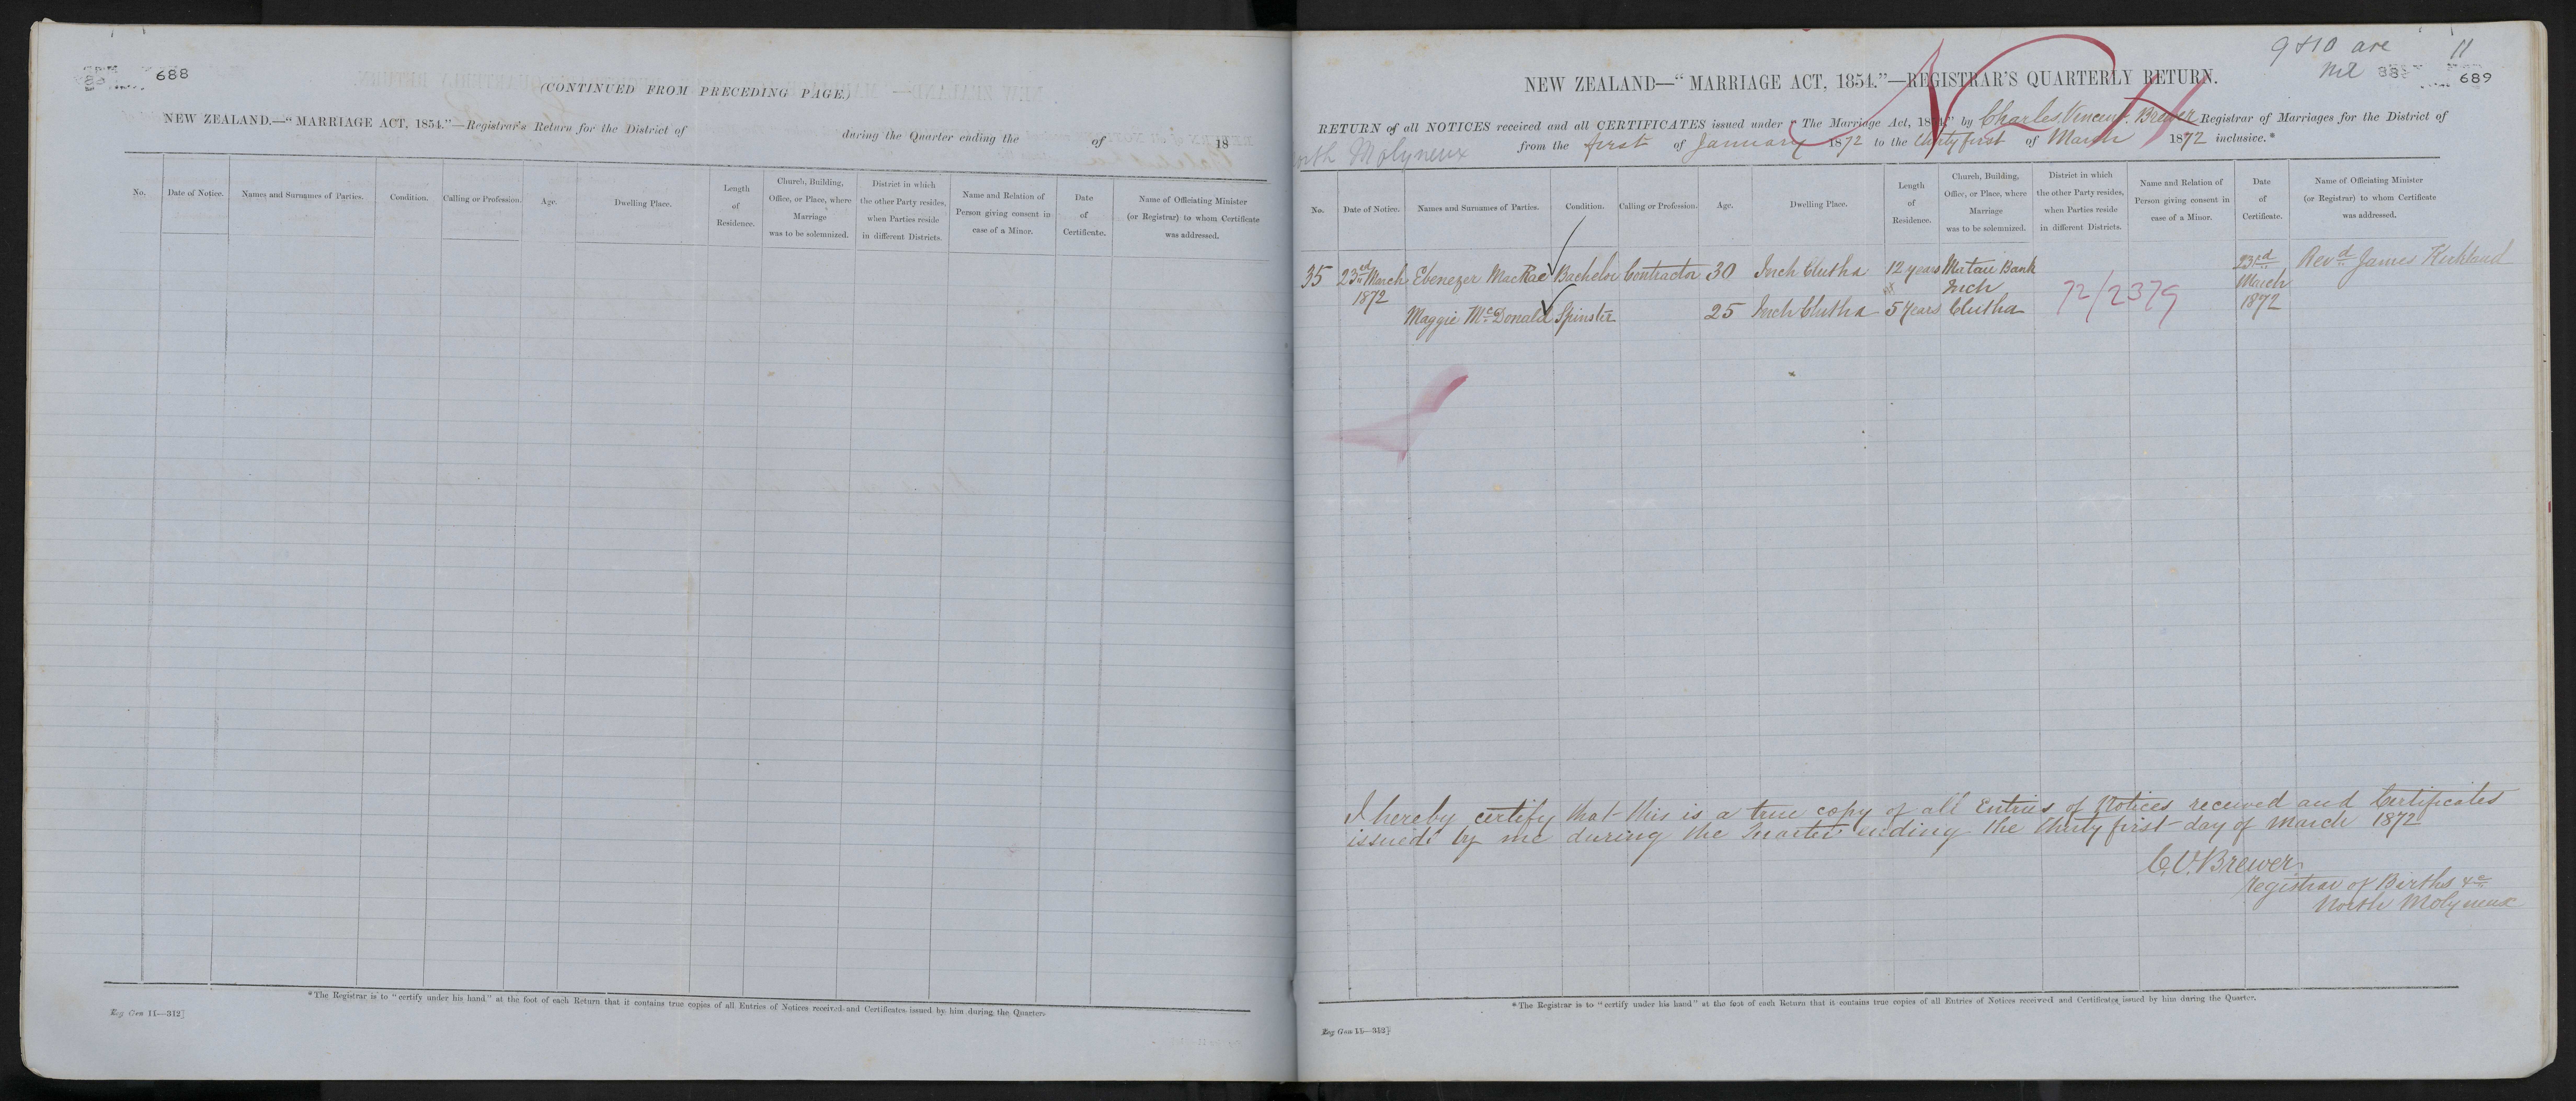 688
(CONTINUED FROM PRECEDING PAGE.)
NEW ZEALAND.—“MARRIAGE ACT, 1854.”—Registrar's Return for the District of during the Quarter ending the of 18
No. Date of Notice. Names and Surnames of Parties. Condition. Calling or Profession. Age. Dwelling Place. Length of Residence. Church, Building, Office, or Place, where Marriage was to be solemnized. District in which the other Party resides, when Parties reside in different Districts. Name and Relation of Person giving consent in case of a Minor. Date of Certificate. Name of Officiating Minister (or Registrar) to whom Certificate was addressed.
*The Registrar is to “certify under his hand” at the foot of each Return that it contains true copies of all Entries of Notices received and Certificates issued by him during the Quarter.
Reg Gen 11—312]
9 & 10 are 11
Nil 689
NEW ZEALAND—“MARRIAGE ACT, 1854.”—REGISTRAR'S QUARTERLY RETURN.
RETURN of all NOTICES received and all CERTIFICATES issued under “The Marriage Act, 1854,” by Charles Vincent Brewer Registrar of Marriages for the District of
North Molyneux from the first of January 1872 to the thirty first of March 1872 inclusive.*
No. Date of Notice. Names and Surnames of Parties. Condition. Calling or Profession. Age. Dwelling Place. Length of Residence. Church, Building, Office, or Place, where Marriage was to be solemnized. District in which the other Party resides, when Parties reside in different Districts. Name and Relation of Person giving consent in case of a Minor. Date of Certificate. Name of Officiating Minister (or Registrar) to whom Certificate was addressed.
35 23rd March 1872 Ebenezer MacRae Bachelor Contractor 30 Inch Clutha 12 years Mutau Bank Inch Clutha 72/2379 23rd March 1872 Revd James Kirkland
Maggie McDonald Spinster 25 Inch Clutha 5 years
I hereby certify that this is a true copy of all Entries of Notices received and Certificates
issued by me during the Quarter ending the thirty first day of March 1872
C.V. Brewer
Registrar of Births &c
North Molyneux
*The Registrar is to “certify under his hand” at the foot of each Return that it contains true copies of all Entries of Notices received and Certificates issued by him during the Quarter.
Reg Gen 11—312]